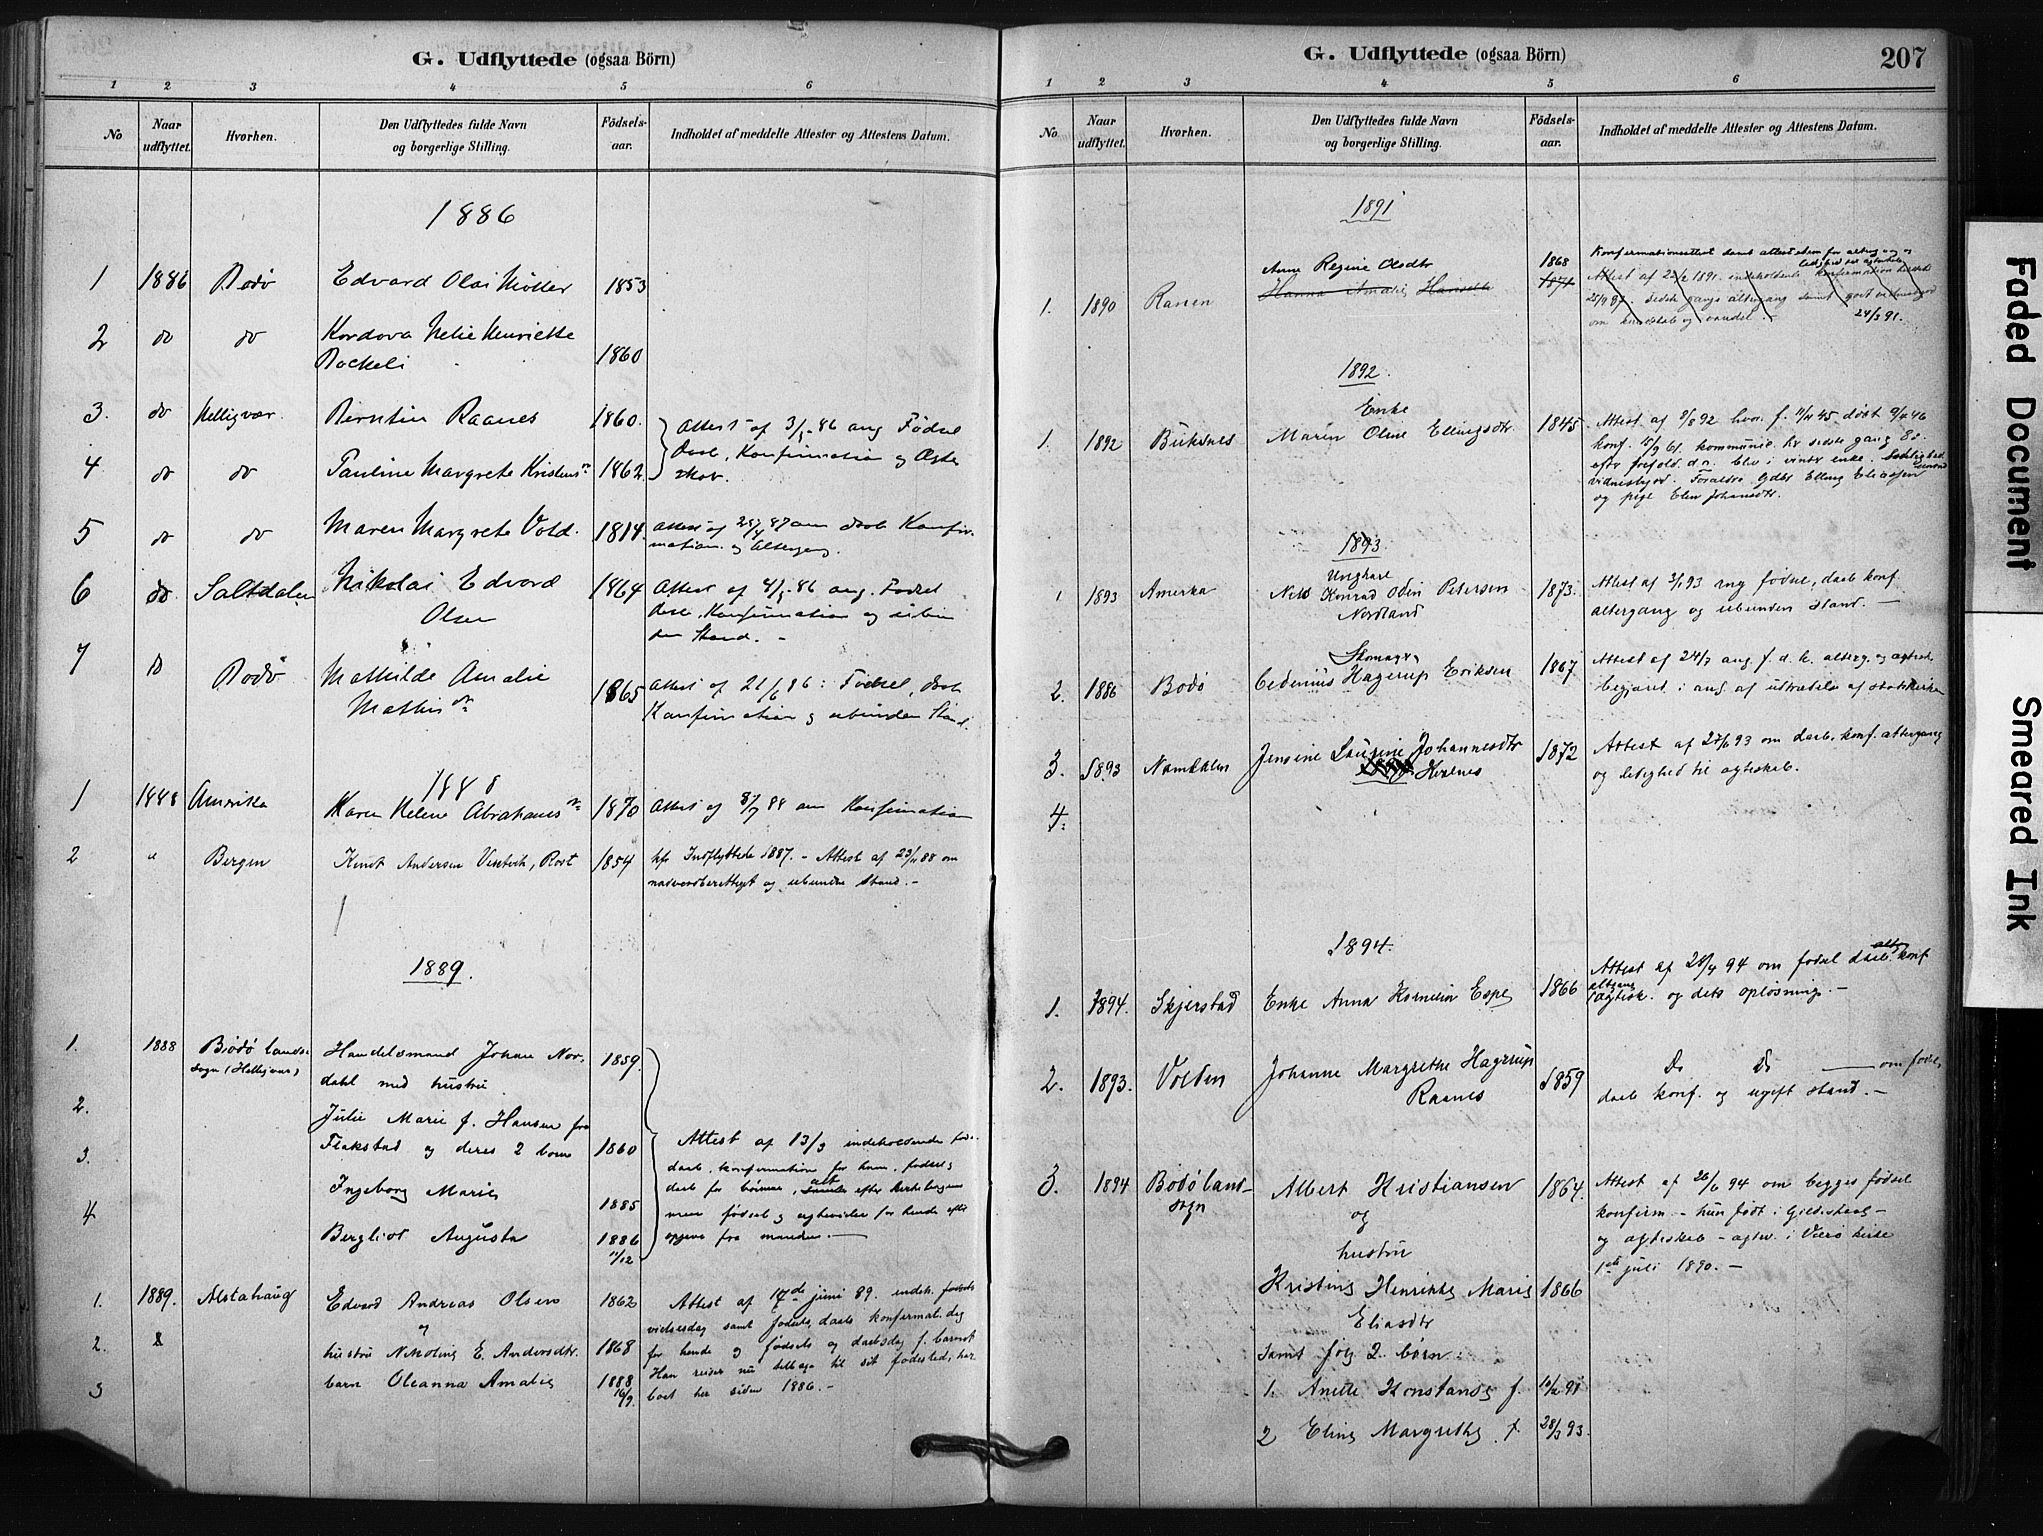 G. Udflyttede (ogsaa Börn)
1 2 3 4 5 6
No Naar udflyttet. Hvorhen. Den Udflyttedes fulde Navn og borgerlige Stilling. Födsels-aar. Indholdet af meddelte Attester og Attestens Datum.
1886
1 1886 Bodø Edvard Olai Møller 1853
2 do do Kordova Nelie Henriette
1860
3. do Helligvær. Berntin Raanes 1860. Attest af 3/5 86 ang Fødsel
4 do do Pauline Margrete Kristensdr 1862 Daab, Konfirmation og Ægte
skab.
5 do do Maren Margrete Vold. 1814. Attest af 87 om Daab Konfir-
mation og Altergang.
6 do Saltdalen Nikolai Edvard 1864 Attest af 86 ang. Fødsel
Olsen Daab, Konfirmation og ubun
den Stand. -
7 D Bodø Mathilde Amalie
1865 Attest af 21/6 86: Fødsel, Daab
Mathisdr Konfirmation og ubunden Stand.
1888
1 1888 Amerika Karen Helene Abrahamsdr 1870 Attest af 8/7 88 om Konfirmation
2 " Bergen Knut Andersen Røst 1854 Indflyttede 1887. - Attest af 23/11 88 om
nadverdberettiget og ubunden Stand. -
1889.
1. 1888 Bodø lands- Handelsmand Johan Nor- 1859.
sogn (Helligvær) dahl med hustru
2. Julie Marie f. Hansen fra
3. Flakstad og deres 2 born 1860 Attest af 13/3 indeholdende fød.
daab, konfirmation for ham, fødsel &
Ingeborg Marie 1885 daab for børnene, alt efter kirkebogen
4 men fødsel og for hende efter
Bergliot Augusta 1886 opgave fra manden. —
11/12
1. 1889. Alstahaug Edvard Andreas Olsen 1862 Attest af 17de juni 89. indeh. fødsels
og vielsesdag samt fødsels, daabs konfirmat. dag
2. hustru Nikoline E. Andersdtr. 1868 for hende og fødsels og daabsdag f. barnet
3 barn Oleanna Amalie 1888 Han reiser nu tilbage til sit fødested, har
16/9. boet her siden 1886. -
G. Udflyttede (ogsaa Börn) 207
1 2 3 4 5 6
No. Naar udflyttet. Hvorhen. Den Udflyttedes fulde Navn og borgerlige Stilling. Födsels-aar. Indholdet af meddelte Attester og Attestens Datum.
1891
Anne Regine Olsdtr 1868 Konfirmationsattest samt attest om for alterg. og
ledighed til ægteskab
1. 1890 Ranen Hanna Amalie Hansdtr 1871 Attest af 1891 indeholdende konfirmation
sidste gangs altergang samt godt vidnesbyrd
om kundskab og vandel. 24/3 91.
1892.
Enke
1. 1892 Buksnes Maren Oline Ellingsdtr. 1845 Attest af 8/8 92 hvor. f. 11/11 45 døbt 46
konf. 61. kommunic. hr sidste gang 80.
efter forhold. d.n. blev i vinter enke.
vidnesbyrd. Forældre Gdbr Elling Eliassen
og pige Elen Johansdtr.
1893.
Ungkarl
1 1893 Amerika Nils Konrad Odin Petersen 1873. Attest af 3/1 93 ang fødsel, daab konf.
Nordland altergang og ubunden stand. —
Skomager
2. 1886 Bodø Cedenius Hagerup Eriksen 1867 Attest af 24/3 ang. f. d. k. alterg. og
begjæret i anl. af udtrædelse af statskirken
3. 1893 Namdalen Jensine Johannesdtr 1872 Attest af 27/6 93 om daab. konf. altergang
Hernes og ledighed til ægteskab.
4.
1894.
1. 1894. Skjerstad Enke Anna Kornelia Espe 1866 Attest af 28/4 94 om fødsel daab konf
altgang
ægtesk. og dets opløsning. -
2. 1893. Volden Johanne Margrethe Hagerup 1859 Do Do — om fødsel,
Raanes daab konf. og ugift stand. -
3. 1894 Bodø land- Albert Kristiansen 1864. Attest af 26/6 94 om begges fødsel
sogn og konfirm - hun født i Gildeskaal -
hustru og ægteskab - ægtev. i Værø kirke
Kristine Henrikke Marie 1866 1ste juli 1890. -
Eliasdtr
samt følg 2 børn:
1. Anette Konstanse f. 91
2 Eline Margrethe f. 28/3 93.
Faded Document
Smeared Ink